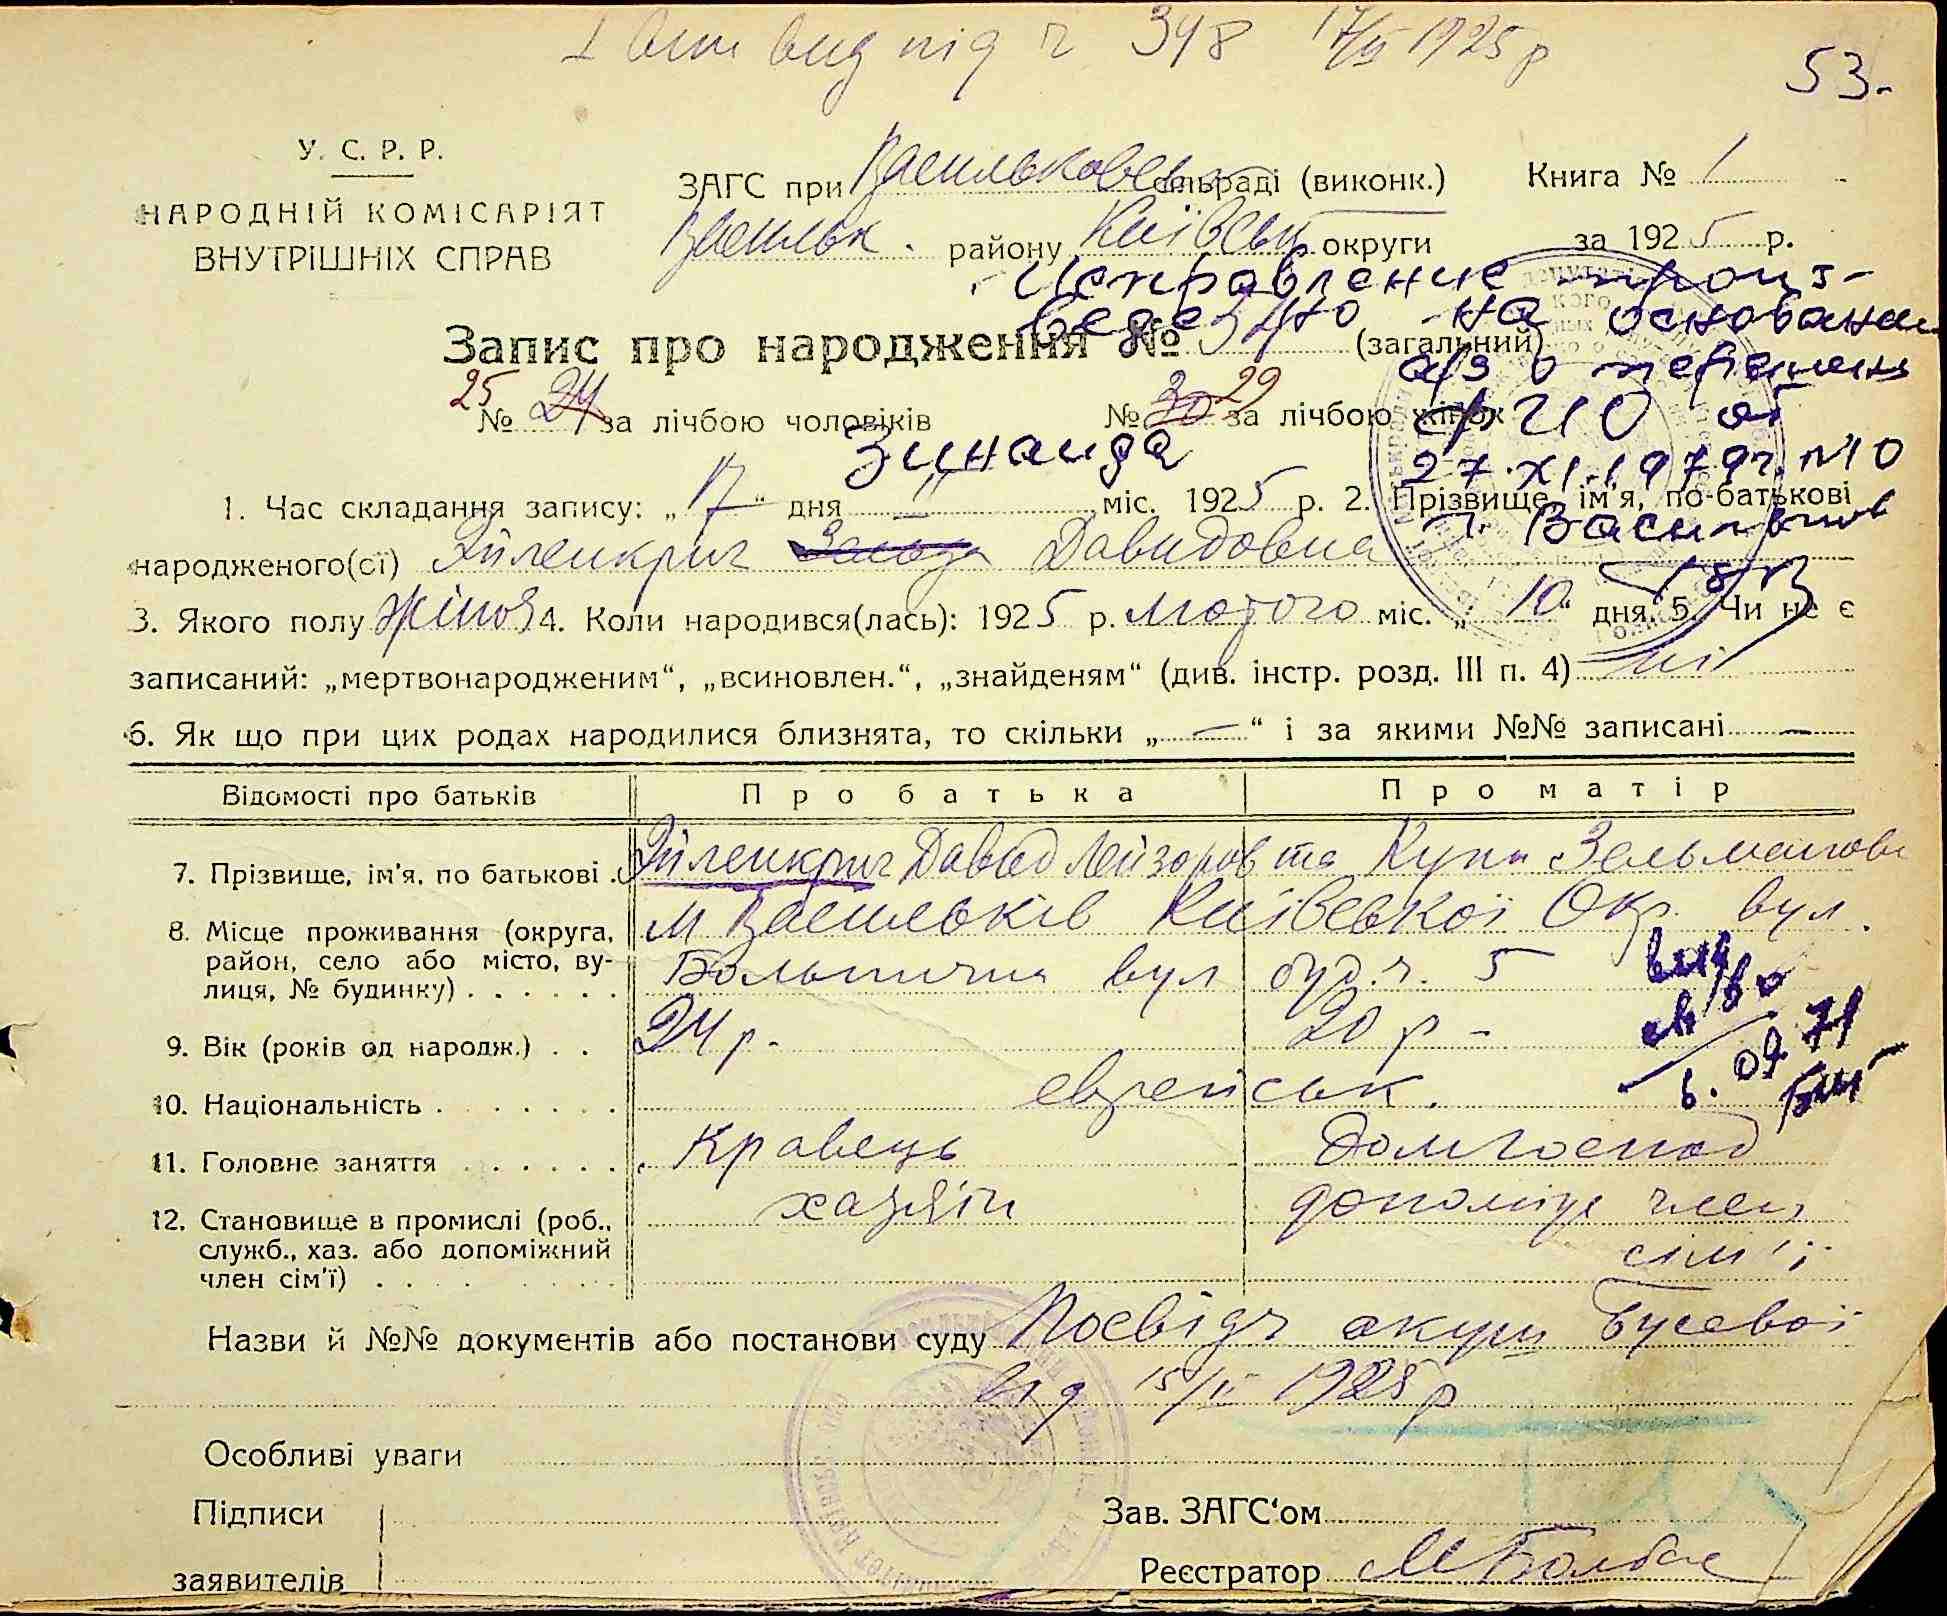 під ч 348 17/II 1925 р
53.
У. С. Р. Р.
НАРОДНІЙ КОМІСАРІЯТ
ВНУТРІШНІХ СПРАВ
ЗАГС при Васильковськ сільраді (виконк.) Книга № 1
Васильк. району Київськ округи за 1925 р.
Исправление произ-
ведено на основании
Запис про народження № 54 (загальний)
а/з о перемене
25
№ 24 за лічбою чоловіків № 30 29 за лічбою жінок
ФИО от
Зинаида
27.XI.1979г. №10
1. Час складання запису: „17“ дня II міс. 1925 р. 2. Прізвище, ім'я, по-батькові
г. Васильков
народженого(єї) Эйленкриг Давидовна
3. Якого полу жіноч 4. Коли народився(лась): 1925 р. лютого міс. „10“ дня. 5. Чи не є
записаний: „мертвонародженим“, „всиновлен.“, „знайденям“ (див. інстр. розд. III п. 4) ні
6. Як що при цих родах народилися близнята, то скільки „—“ і за якими №№ записані —
Відомості про батьків Про батька Про матір
7. Прізвище, ім'я, по батькові . Эйленкриг Давид Лейзоров та Зельманова
8. Місце проживання (округа, м Васильків Київської Окр. вул.
район, село або місто, ву- Больнична вул буд. ч. 5
лиця, № будинку) . . . . . .
9. Вік (років од народж.) . . 24 р. 20 р –
09 71
10. Національність . . . . . . . еврейськ.
11. Головне заняття . . . . . . . Кравець Домгоспод
12. Становище в промислі (роб., хазяїн допоміж член
служб., хаз. або допоміжний сім'ї
член сім'ї) . . . . . . . . .
Назви й №№ документів або постанови суду Посвідч акуш Бусевої
від 15/II 1925 р
Особливі уваги
Підписи Зав. ЗАГС‘ом
заявителів Реєстратор